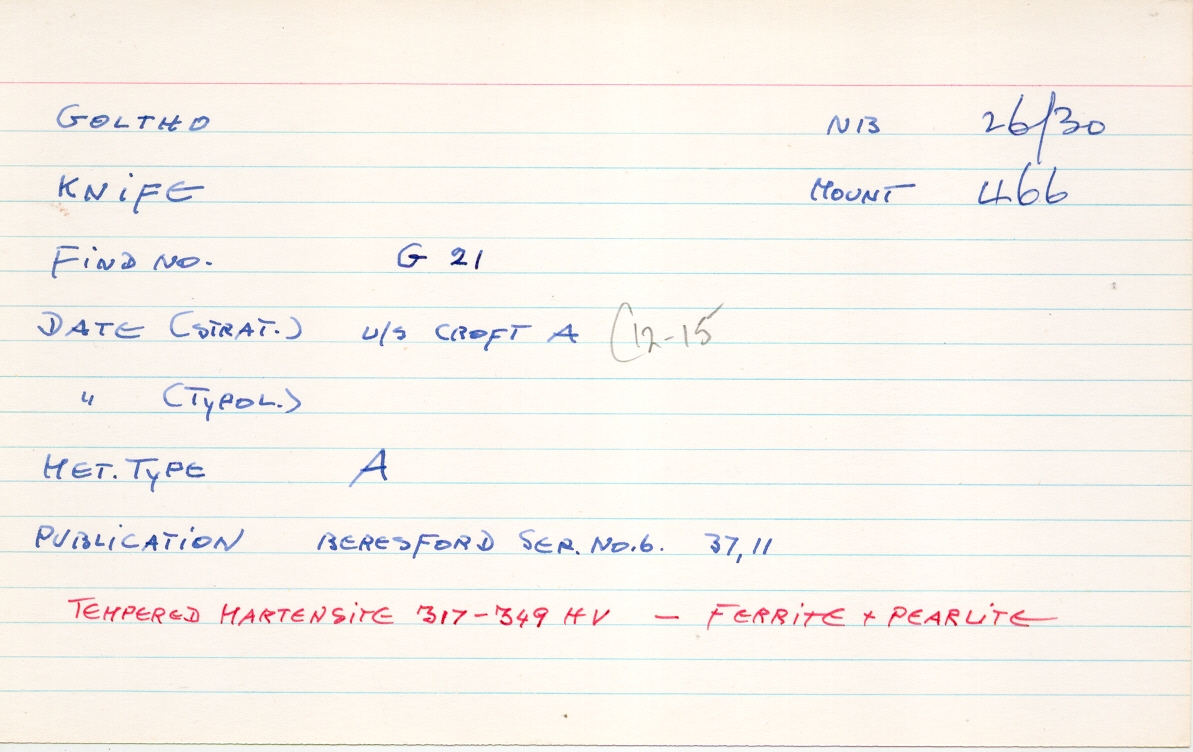 GOLTHO NB 26/30
KNiFE MOUNT 466
FiND NO. G 21
DATE (STRAT.) U/S CROFT A (12-15
" (TYPOL.)
MET. TYPE A
PUBLiCATiON BERESFORD SER. NO.6. 37,11
TEMPERED MARTENSiTE 317-349 HV — FERRiTE + PEARLiTE